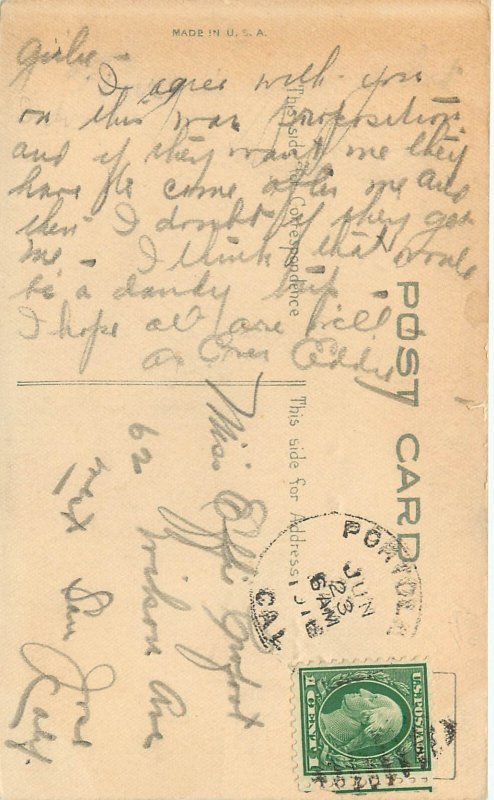 MADE IN U. S. A.
Girlie -
I agree with you
on this war proposition
and if they want me they
have to come after me and
then I doubt if they get
me - I think that would
be a dandy trip -
I hope all are well -
as Ever Eddie
This side for Correspondence
POST CARD
This side for Address
Miss Effie
62
Ave
San Jose
Calif
PORTOLA
JUN
23
6 AM
CAL.
U.S. POSTAGE
1 CENT 1